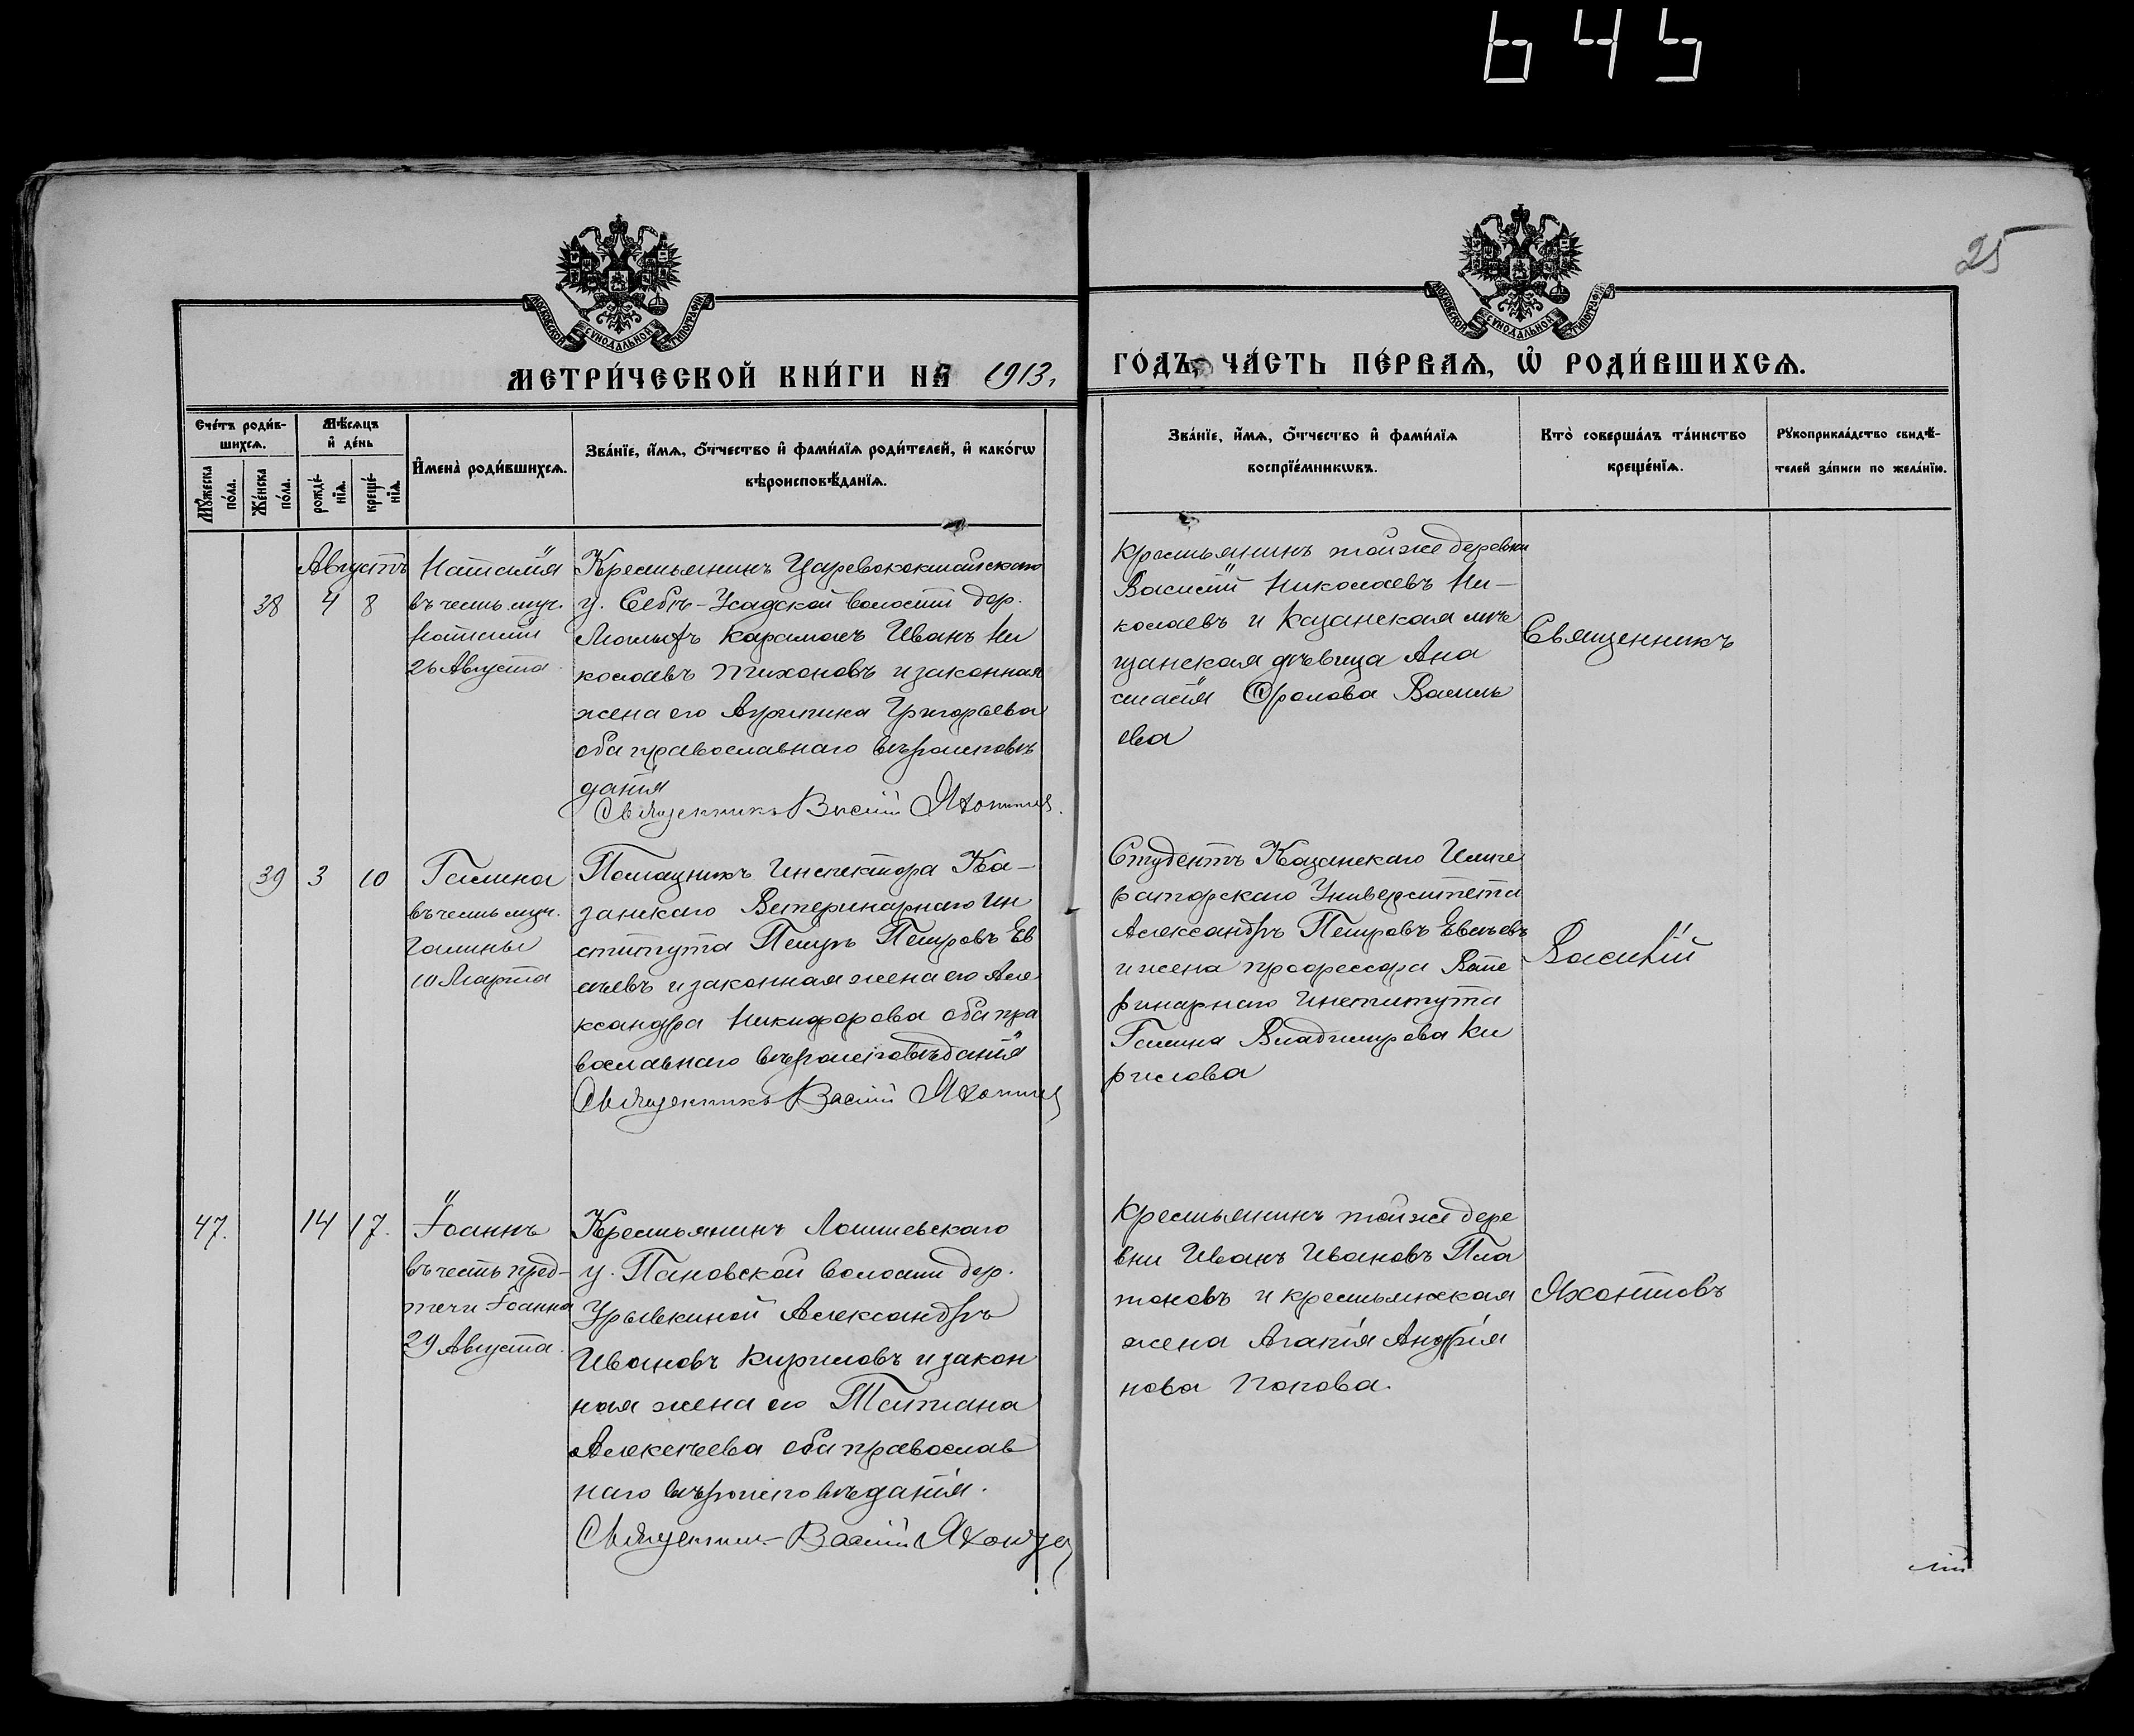 645
25
МОСКОВСКОЙ СѴНОДАЛЬНОЙ ТИПОГРАФІИ
МОСКОВСКОЙ СѴНОДАЛЬНОЙ ТИПОГРАФІИ
МЕТРИ́ЧЕСКОЙ КНИ́ГИ НА 1913.
ГО́ДЪ, ЧА́СТЬ ПЕ́РВАѦ, Ѽ РОДИ́ВШИХСѦ.
Сче́тъ роди́в-
шихсѧ.
Мꙋ́жеска по́ла.
Же́нска по́ла.
Мѣ́сѧцъ
и҆ де́нь
рожде́-
нїѧ.
креще́-
нїѧ.
И҆мена̀ роди́вшихсѧ.
Зва́нїе, и҆́мѧ, ѻ҆́тчество и҆ фами́лїѧ роди́телей, и҆ како́гѡ
вѣроисповѣ́данїѧ.
Зва́нїе, и҆́мѧ, ѻ҆́тчество и҆ фами́лїѧ
воспрїе́мникѡвъ.
Кто̀ соверша́лъ та́инство
креще́нїѧ.
Рꙋкоприкла́дство свидѣ́-
телей за́писи по жела́нїю.
Августъ
38 4 8
Наталія
въ честь муч.
Наталіи
26 Августа.
Крестьянинъ Царевококшайскаго
у. Себѣ-Усадской волости дер.
Карамасъ Иванъ Ни
колаевъ Тихоновъ и законная
жена его Агрипина Григорьева
оба православнаго вѣроисповѣ
данія
Священникъ Василій Яхонтовъ.
Крестьянинъ той же деревни
Василій Николаевъ Ни-
колаевъ и Казанская мѣ
щанская дѣвица Ана
стасія Фролова Василь
ева
Священникъ
39 3 10
Галина
въ честь муч.
Галины
10 Марта
Помощникъ Инспектора Ка-
занскаго Ветеринарнаго Ин
ститута Петръ Петровъ Ев
сѣевъ и законная жена его Але
ксандра Никифорова оба пра
вославнаго вѣроисповѣданія
Священникъ Василій Яхонтовъ
Студентъ Казанскаго Импе
раторскаго Университета
Александръ Петровъ Евсѣевъ
и жена профессора Вете
ринарнаго Института
Галина Владимирова Ки
рилова
Василій
47. 14 17.
Іоаннъ
въ честь пред-
течи Іоанна
29 Августа.
Крестьянинъ Лаишевскаго
у. Пановской волости дер.
Урывкиной Александръ
Ивановъ Кириловъ и закон
ная жена его Татіана
Алексѣева оба православ
наго вѣроисповѣданія.
Священникъ Василій Яхонтовъ
Крестьянинъ той же дере
вни Иванъ Ивановъ Пла
тоновъ и крестьянская
жена Агапія Андрія
нова Попова.
Яхонтовъ